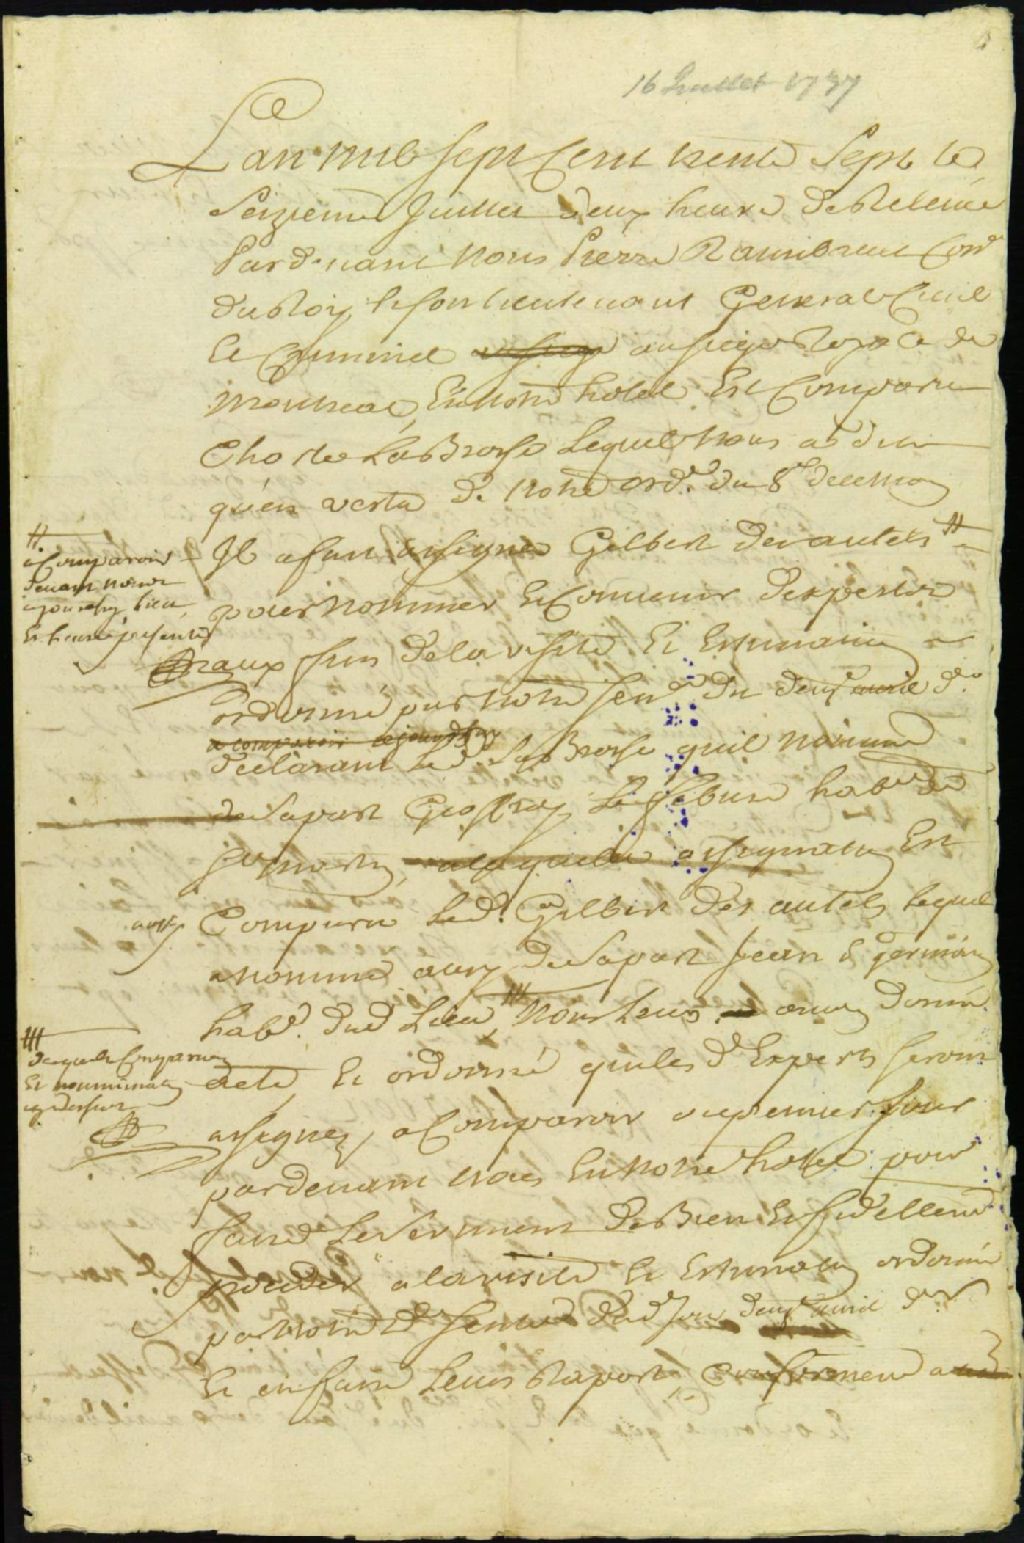 16 Juillet 1737
Lan mil sept Cent trente Sept le
Seizieme Juillet deux heure de Relevée
Pardevant Nous Pierre Raimbault Conr
du Roy, et son lieutenant General Civil
et Criminel au siege Royal de
Montreal, En notre hotel Est Comparu
Labrosse Lequel Nous a dit
qu'en vertu de notre ordce du 8e decemois
Il a fait assigner Gilbert desautels #
pour Nommer et Convenir dexperts
aux fins de la visite Et Estimation
ordonné par Notre Sence du deux avril dr
a comparoir aujourdhuy
declarant led. Labrosse quil Nomme
de sa part Geoffroy Lefebure habt de
St Martin, a laquelle assignation Est
aussy Comparu led. Gilbert des autels lequel
a nommé aussy de Sa part Jean St germain
habt. dud Lieu, Nous Leur avons donné
acte, Et ordonné que les d Experts seront
assignez, a Comparoir au premier Jour
pardevant Nous En Notre hotel pour
faire le serment de Bien Et fidellemt
proceder a la visite Et Estimation ordonné
par Notre de Sence dud Jour deux avril dr
Et en faire leur Raport, Conformemt a
#
a Comparoir
devant nous
a jourdhuy lieu
Et heure presente
#
desquels Comparution
Et nomination
cy dessus